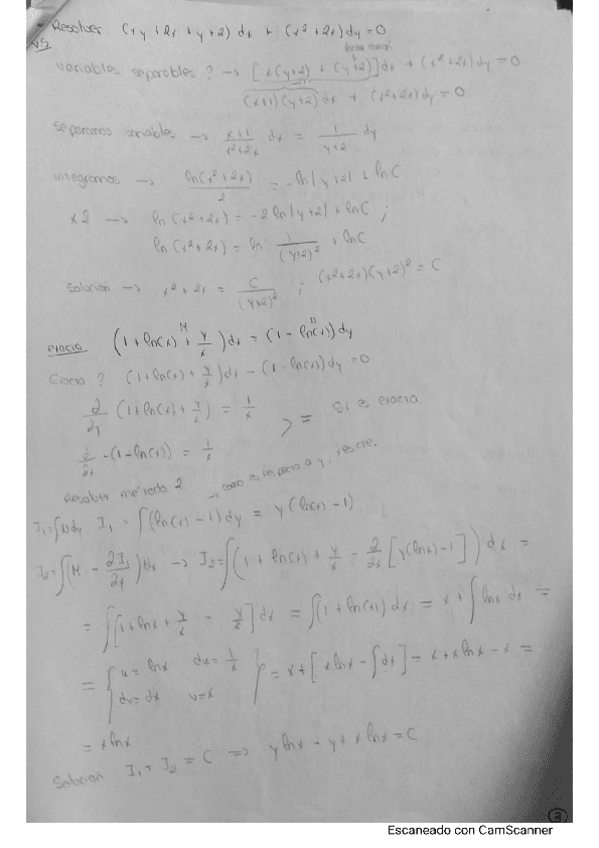 - Resolver (xy + 2x + y + 2) dx + (x² + 2x) dy = 0
VS
factor común
variables separables? → [x(y+2) + (y+2)] dx + (x² + 2x) dy = 0
(x+1)(y+2) dx + (x² + 2x) dy = 0
separamos variables → x+1/x²+2x dx = 1/y+2 dy
integramos → ln(x² + 2x)/2 = -ln|y+2| + lnC
x2 → ln(x² + 2x) = -2 ln|y+2| + lnC ;
ln(x² + 2x) = ln 1/(y+2)² + lnC
Solución → x² + 2x = C/(y+2)² ; (x²+2x)(y+2)² = C
exacta (1 + ln(x) + y/x) dx = (1 - ln(x)) dy
M N
Exacta? (1 + ln(x) + y/x) dx - (1 - ln(x)) dy = 0
∂/∂y (1 + ln(x) + y/x) = 1/x
> = Sí es exacta
∂/∂x -(1 - ln(x)) = 1/x
Resolver método 2
I₁=∫Ndy I₁ = ∫(ln(x) - 1) dy = y(ln(x) - 1)
I₂=∫(M - ∂I₁/∂x) dx → I₂=∫(1 + ln(x) + y/x - ∂/∂x [y(lnx) - 1]) dx =
= ∫[1 + lnx + y/x - y/x] dx = ∫(1 + ln(x)) dx = x + ∫ lnx dx =
= { u = lnx du = 1/x dv = dx v = x } = x + [x lnx - ∫dx] = x + x lnx - x =
= x lnx
Solución I₁ + I₂ = C ⇒ y lnx - y + x lnx = C
3
Escaneado con CamScanner